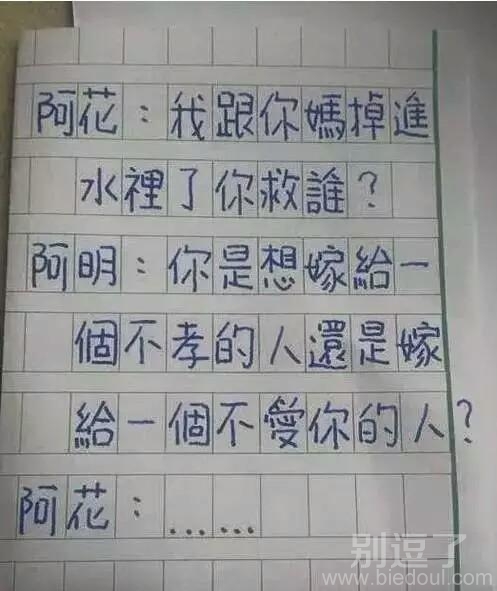 阿花：我跟你媽掉進
水裡了你救誰？
阿明：你是想嫁給一
個不孝的人還是嫁
給一個不愛你的人？
阿花：……
别逗了
www.biedoul.com